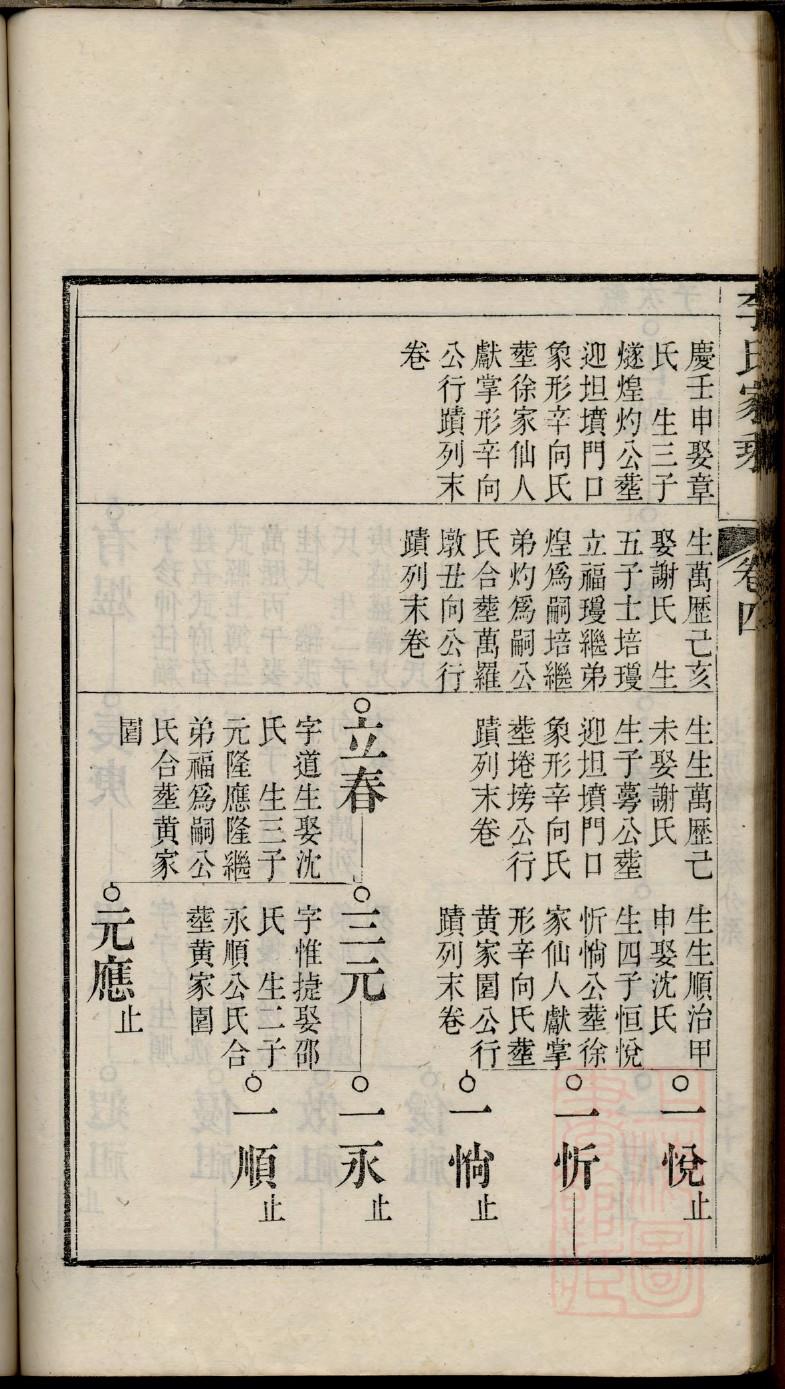 李氏家乘
卷四
慶壬申娶章
氏　生三子
燧煌灼公塟
迎坦墳門口
象形辛向氏
塟徐家仙人
獻掌形辛向
公行蹟列末
卷
生萬歷己亥
娶謝氏　生
五子士培瓊
立福瓊繼弟
煌爲嗣培繼
弟灼爲嗣公
氏合塟萬羅
墩丑向公行
蹟列末卷
生生萬歷己
未娶謝氏
生子蕚公塟
迎坦墳門口
象形辛向氏
塟捲塝公行
蹟列末卷
立春
字道生娶沈
氏　生三子
元隆應隆繼
弟福爲嗣公
氏合塟黄家
園
生生順治甲
申娶沈氏
生四子恒悅
忻惝公塟徐
家仙人獻掌
形辛向氏塟
黄家園公行
蹟列末卷
三元
字惟捷娶邵
氏　生二子
永順公氏合
塟黄家園
元應止
一悅止
一忻
一惝止
一永止
一順止